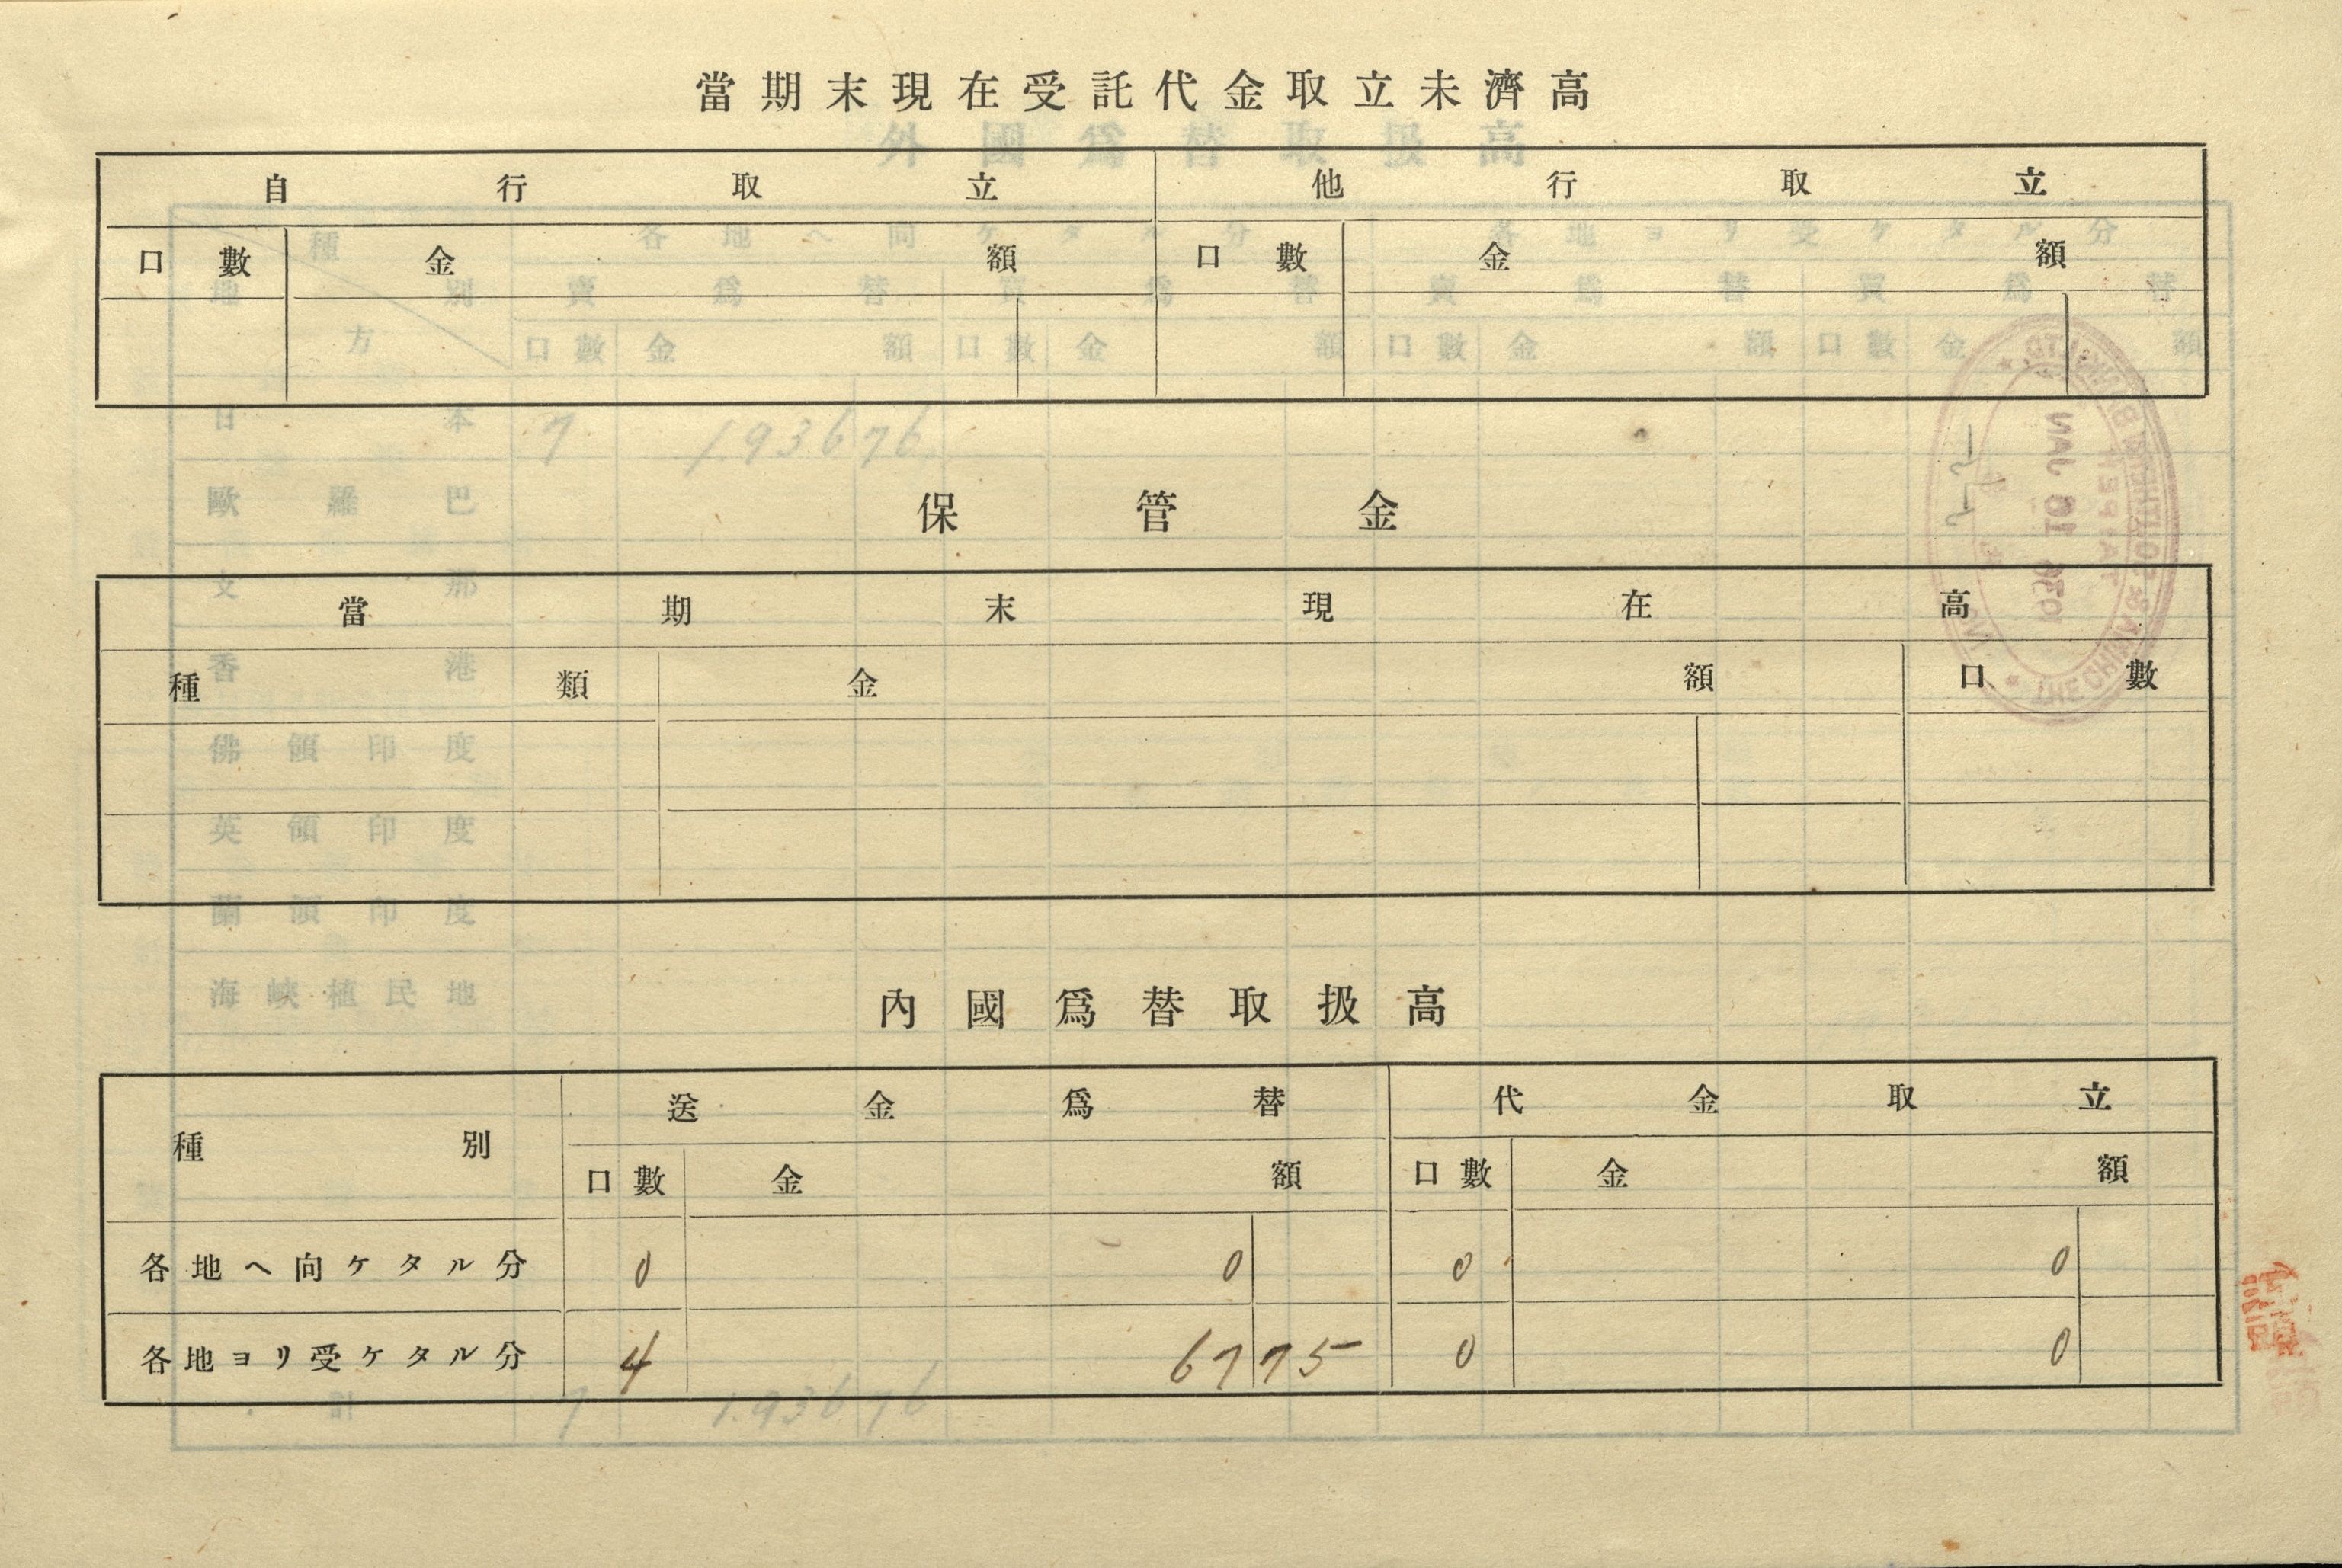 當期末現在受託代金取立未濟高
自行取立 他行取立
口數 金額 口數 金額
保管金
當期末現在高
種類 金額 口數
內國爲替取扱高
種別 送金爲替 代金取立
口數 金額 口數 金額
各地ヘ向ケタル分 0 0 0 0
各地ヨリ受ケタル分 4 67 75 0 0
外國爲替取扱高
種別 地方 各地ヘ向ケタル分 各地ヨリ受ケタル分
賣爲替 買爲替 賣爲替 買爲替
口數 金額 口數 金額 口數 金額 口數 金額
日本 7 1.936 76
歐羅巴
支那
香港
佛領印度
英領印度
蘭領印度
海峽植民地
計 7 1.936 76